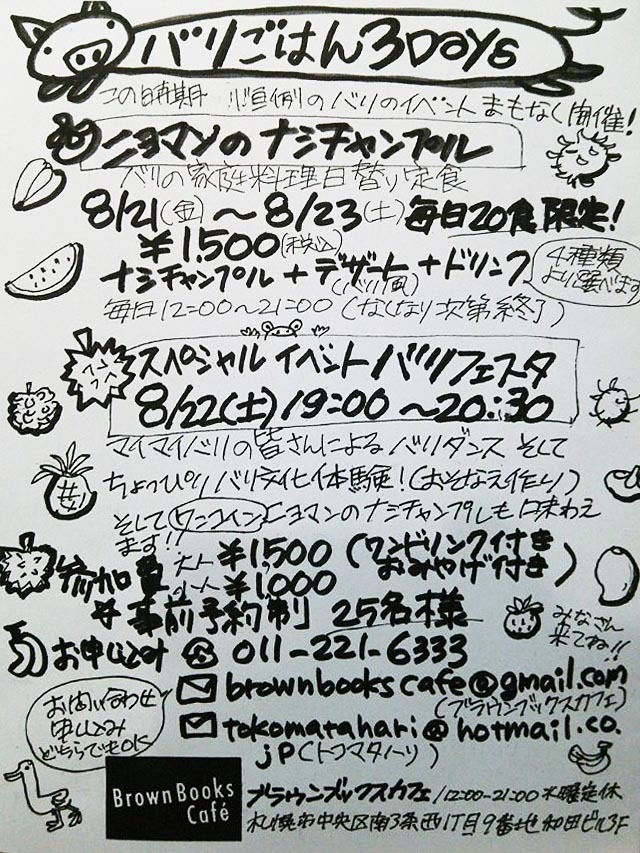 バリごはん3Days
この時期 恒例のバリのイベント まもなく開催!
ニョマンのナシチャンプル
バリの家庭料理日替り定食
8/21(金)〜8/23(土)毎日20食限定!
¥1.500(税込)
ナシチャンプル+デザート+ドリンク
(バリ風)
4種類
より選べます
毎日12:00〜21:00(なくなり次第終了)
スペシャルイベント バリフェスタ
8/22(土)19:00〜20:30
マイマイバリの皆さんによるバリダンス そして
ちょっぴりバリ文化体験!(おそなえ作り)
そしてワンコインニョマンのナシチャンプルも味わえ
ます!!
参加費 大人 ¥1.500(ワンドリンク付き
おみやげ付き)
小人 ¥1.000
事前予約制 25名様
みなさん
来てね!!
お申し込み 011-221-6333
brownbookscafe@gmail.com
(ブラウンブックスカフェ)
tokomatahari@hotmail.co.
jp(トコマタハリ)
お問い合わせ
申し込み
どちらでもOK
Brown Books
Café
ブラウンブックスカフェ/12:00-21:00 水曜定休
札幌市中央区南3条西1丁目9番地 和田ビル3F